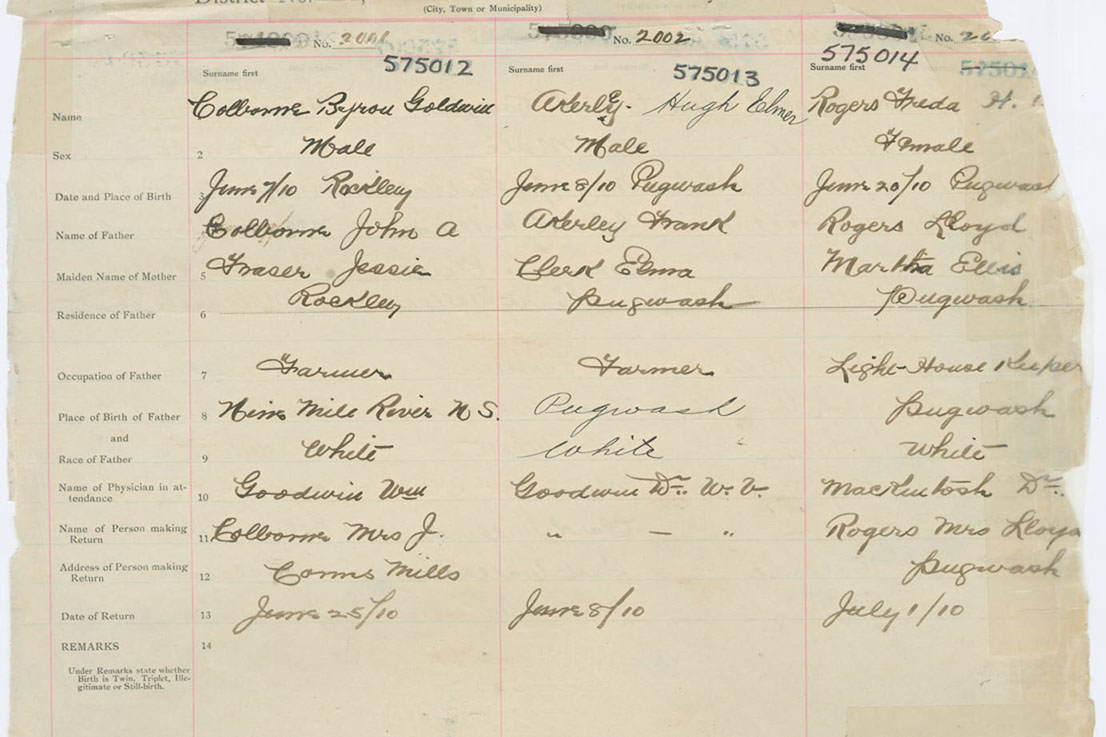 District No.
(City, Town or Municipality)
No. 2001 No. 2002 No. 20
575012 575013 575014
Surname first Surname first Surname first
Name Colborne Byron Goldwin Akerley. Hugh Elmer Rogers Freda H.
Sex 2 Male Male Female
Date and Place of Birth 3 June 7/10 Rockley June 8/10 Pugwash June 20/10 Pugwash
Name of Father Colborne John A Akerley Frank Rogers Lloyd
Maiden Name of Mother 5 Fraser Jessie Clerk Elma Martha Ellis
Residence of Father 6 Rockley Pugwash Pugwash
Occupation of Father 7 Farmer Farmer Light-House Keeper
Place of Birth of Father 8 Nine Mile River N S. Pugwash Pugwash
and
Race of Father 9 White White White
Name of Physician in at-
tendance 10 Goodwin Wm Goodwin Dr. W. V. MacKintosh Dr.
Name of Person making
Return 11 Colborne Mrs J. " — " Rogers Mrs Lloyd
Address of Person making
Return 12 Conns Mills Pugwash
Date of Return 13 June 25/10 June 8/10 July 1/10
REMARKS 14
Under Remarks state whether
Birth is Twin, Triplet, Ille-
gitimate or Still-birth.